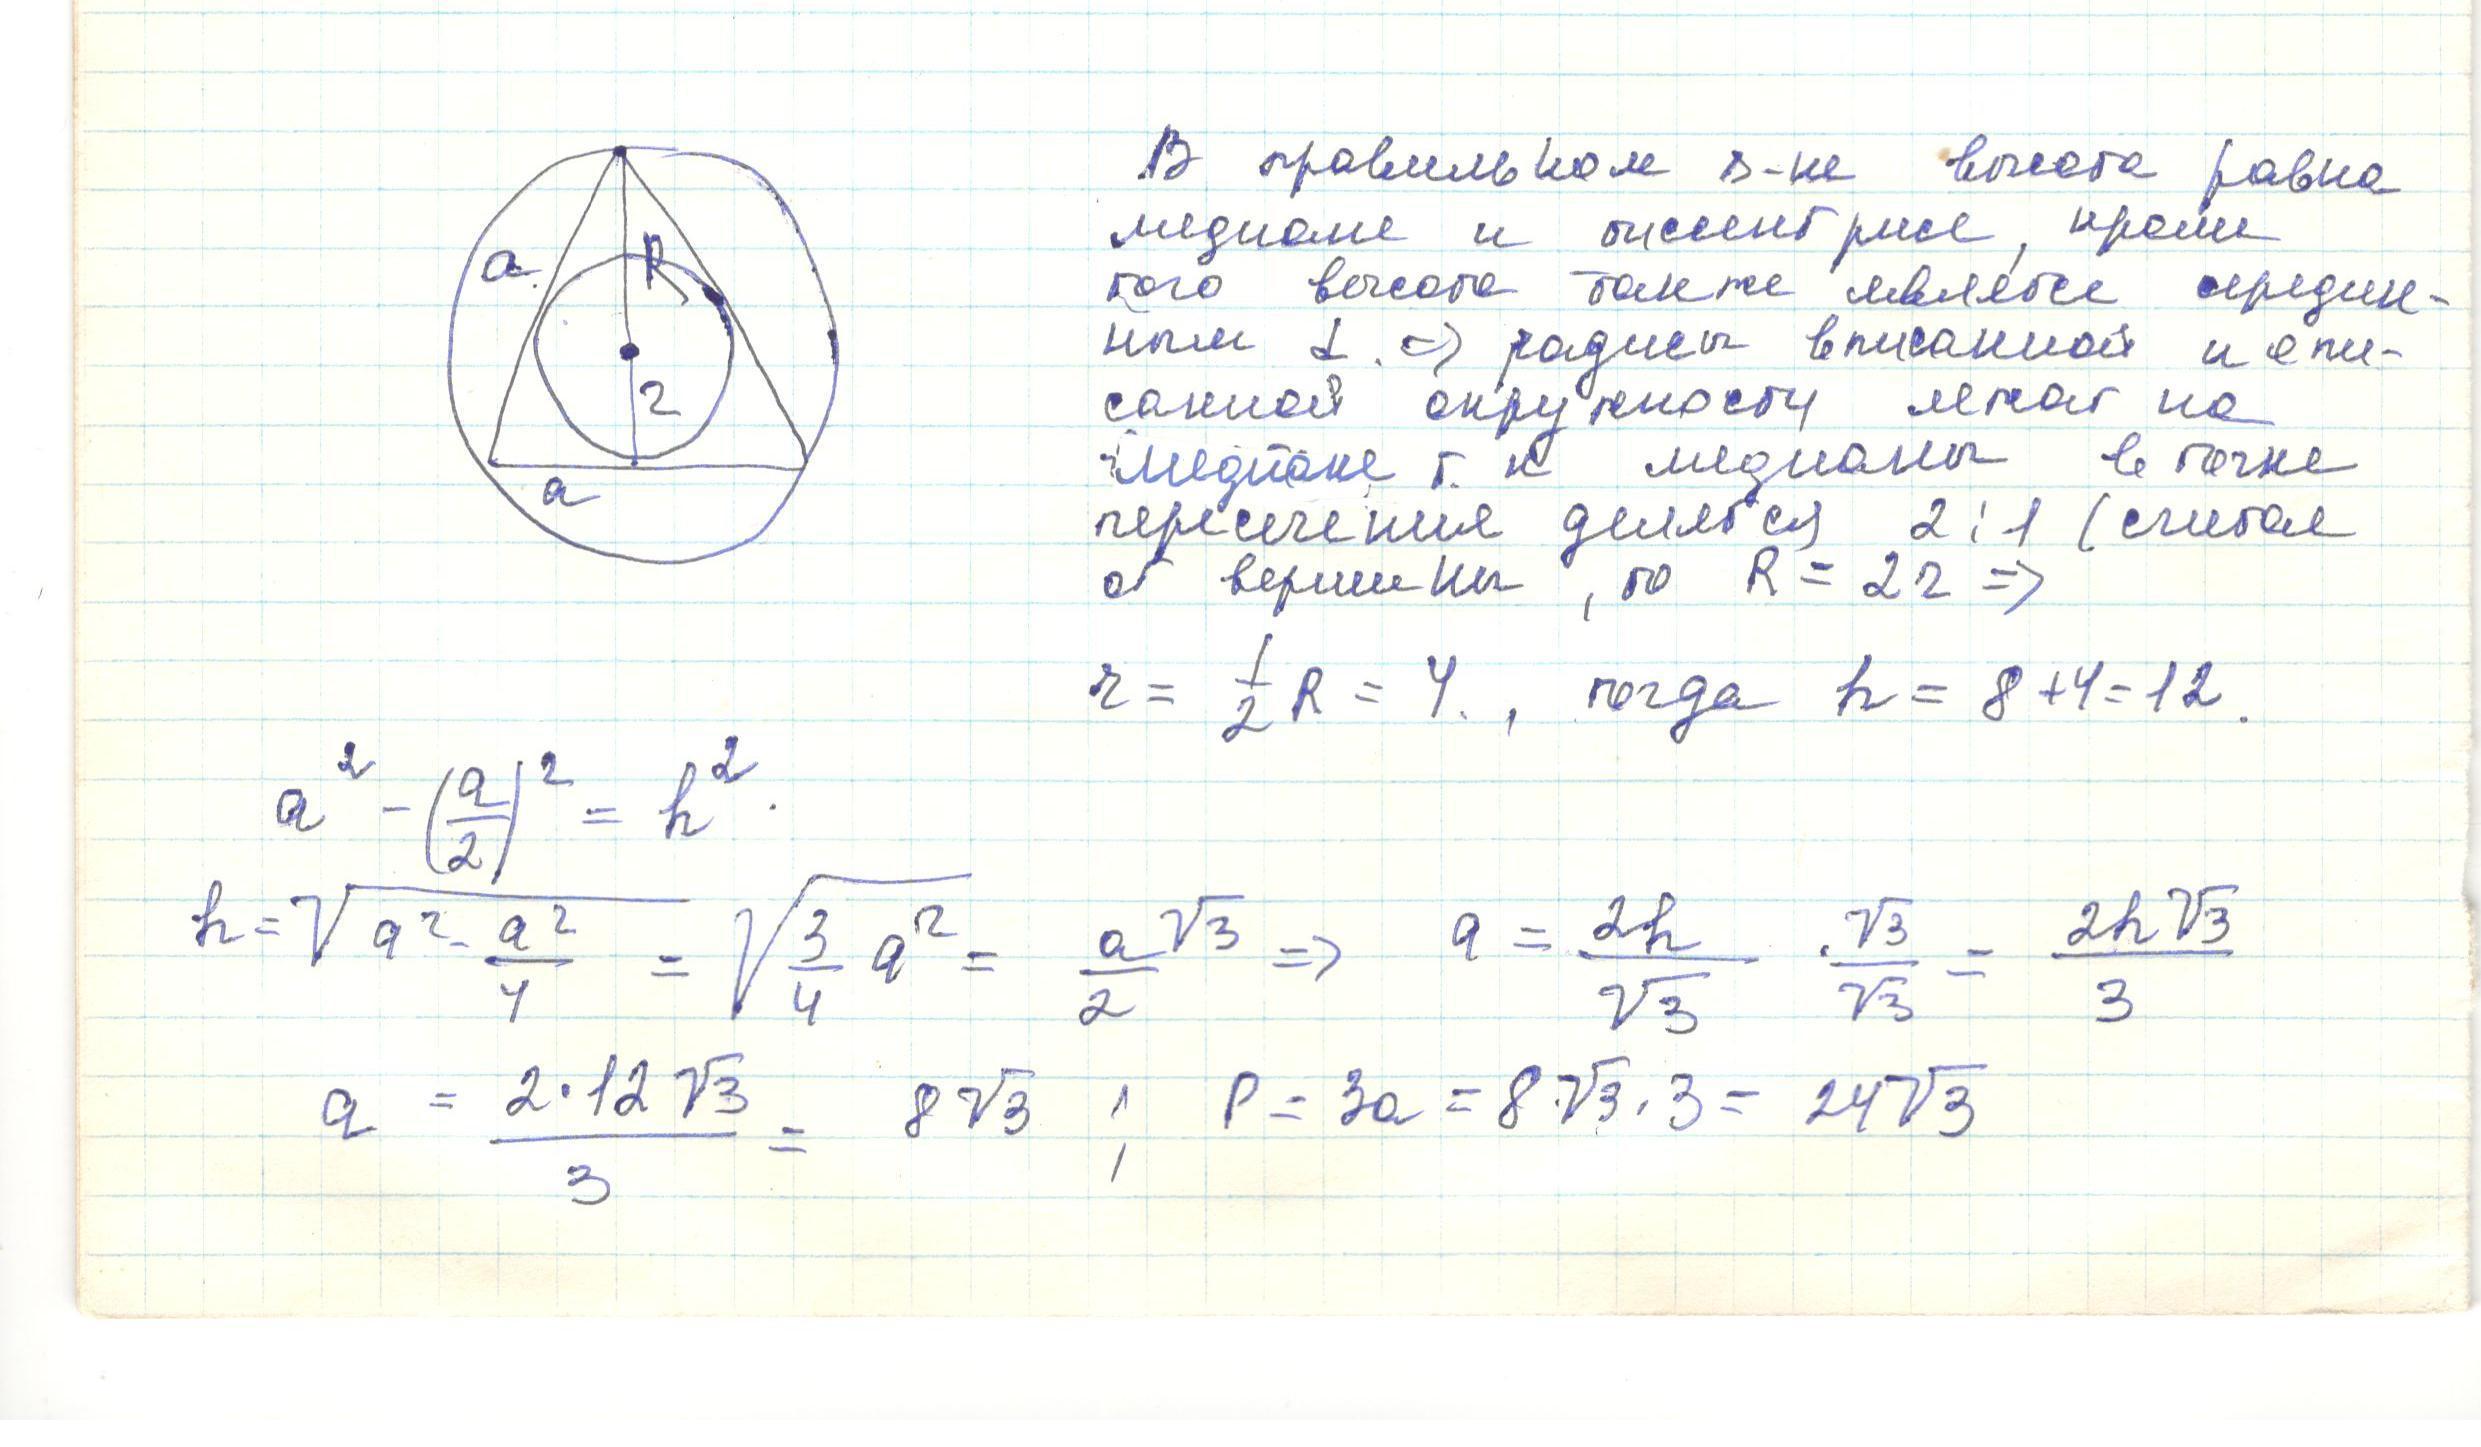 В правильном Δ-ке высота равна
медиане и биссектрисе, кроме
того высота также является середин-
ным ⊥. => радиусы вписанной и опи-
санной окружности лежат на
медиане т. к медианы в точке
пересечения делятся 2:1 (считая
от вершины, то R = 2r =>
r = 1/2 R = 4., тогда h = 8+4=12.
a
R
r
a
a² - (a/2)² = h².
h = √(a² - a²/4) = √(3/4 a²) = a/2 √3 => a = 2h/√3 · √3/√3 = 2h√3/3
a = 2·12√3/3 = 8√3 ; P = 3a = 8·√3·3 = 24√3